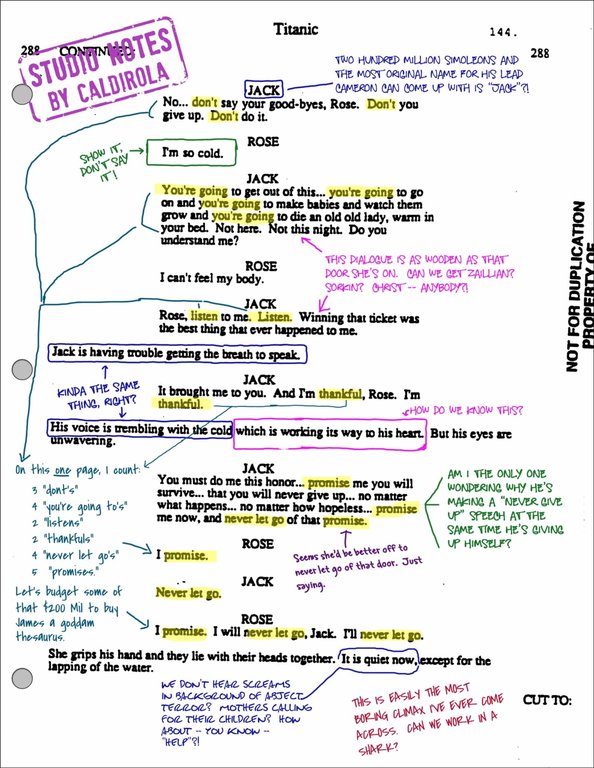 Titanic
144.
288 CONTINUED:
288
STUDIO NOTES
BY CALDIROLA
TWO HUNDRED MILLION SIMOLEONS AND
THE MOST ORIGINAL NAME FOR HIS LEAD
CAMERON CAN COME UP WITH IS "JACK"?!
JACK
No... don't say your good-byes, Rose. Don't you
give up. Don't do it.
SHOW IT,
DON'T SAY
IT!
ROSE
I'm so cold.
JACK
You're going to get out of this... you're going to go
on and you're going to make babies and watch them
grow and you're going to die an old old lady, warm in
your bed. Not here. Not this night. Do you
understand me?
THIS DIALOGUE IS AS WOODEN AS THAT
DOOR SHE'S ON. CAN WE GET ZAILLIAN?
SORKIN? CHRIST -- ANYBODY?!
ROSE
I can't feel my body.
JACK
Rose, listen to me. Listen. Winning that ticket was
the best thing that ever happened to me.
Jack is having trouble getting the breath to speak.
KINDA THE SAME
THING, RIGHT?
JACK
It brought me to you. And I'm thankful, Rose. I'm
thankful.
HOW DO WE KNOW THIS?
His voice is trembling with the cold which is working its way to his heart. But his eyes are
unwavering.
On this one page, I count:
3 "dont's"
4 "you're going to's"
2 "listens"
2 "thankfuls"
4 "never let go's"
5 "promises."
Let's budget some of
that $200 Mil to buy
James a goddam
thesaurus.
JACK
You must do me this honor... promise me you will
survive... that you will never give up... no matter
what happens... no matter how hopeless... promise
me now, and never let go of that promise.
AM I THE ONLY ONE
WONDERING WHY HE'S
MAKING A "NEVER GIVE
UP" SPEECH AT THE
SAME TIME HE'S GIVING
UP HIMSELF?
ROSE
I promise.
Seems she'd be better off to
never let go of that door. Just
saying.
JACK
Never let go.
ROSE
I promise. I will never let go, Jack. I'll never let go.
She grips his hand and they lie with their heads together. It is quiet now, except for the
lapping of the water.
WE DON'T HEAR SCREAMS
IN BACKGROUND OF ABJECT
TERROR? MOTHERS CALLING
FOR THEIR CHILDREN? HOW
ABOUT -- YOU KNOW --
"HELP"?!
THIS IS EASILY THE MOST
BORING CLIMAX I'VE EVER COME
ACROSS. CAN WE WORK IN A
SHARK?
CUT TO:
NOT FOR DUPLICATION
PROPERTY OF